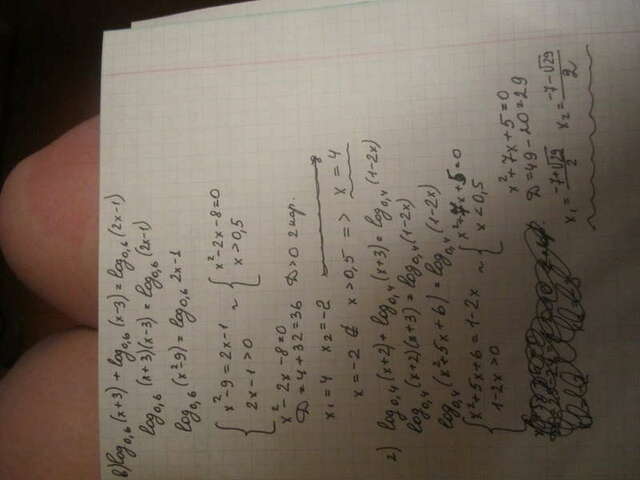 в) log₀,₆(x+3) + log₀,₆(x-3) = log₀,₆(2x-1)
log₀,₆(x+3)(x-3) = log₀,₆(2x-1)
log₀,₆(x²-9) = log₀,₆ 2x-1
{ x²-9 = 2x-1 ~ { x²-2x-8=0
2x-1 >0 x>0,5
x²-2x-8=0
D=4+32=36 D>0 2 кор.
x₁=4 x₂=-2
x=-2 ∉ x>0,5 => x=4
г) log₀,₄(x+2) + log₀,₄(x+3) = log₀,₄(1-2x)
log₀,₄(x+2)(x+3) = log₀,₄(1-2x)
log₀,₄(x²+5x+6) = log₀,₄(1-2x)
{ x²+5x+6 = 1-2x ~ { x²+7x+5=0
1-2x>0 x<0,5
x²+7x+5=0
D=49-20=29
x₁= (-7+√29)/2 x₂= (-7-√29)/2